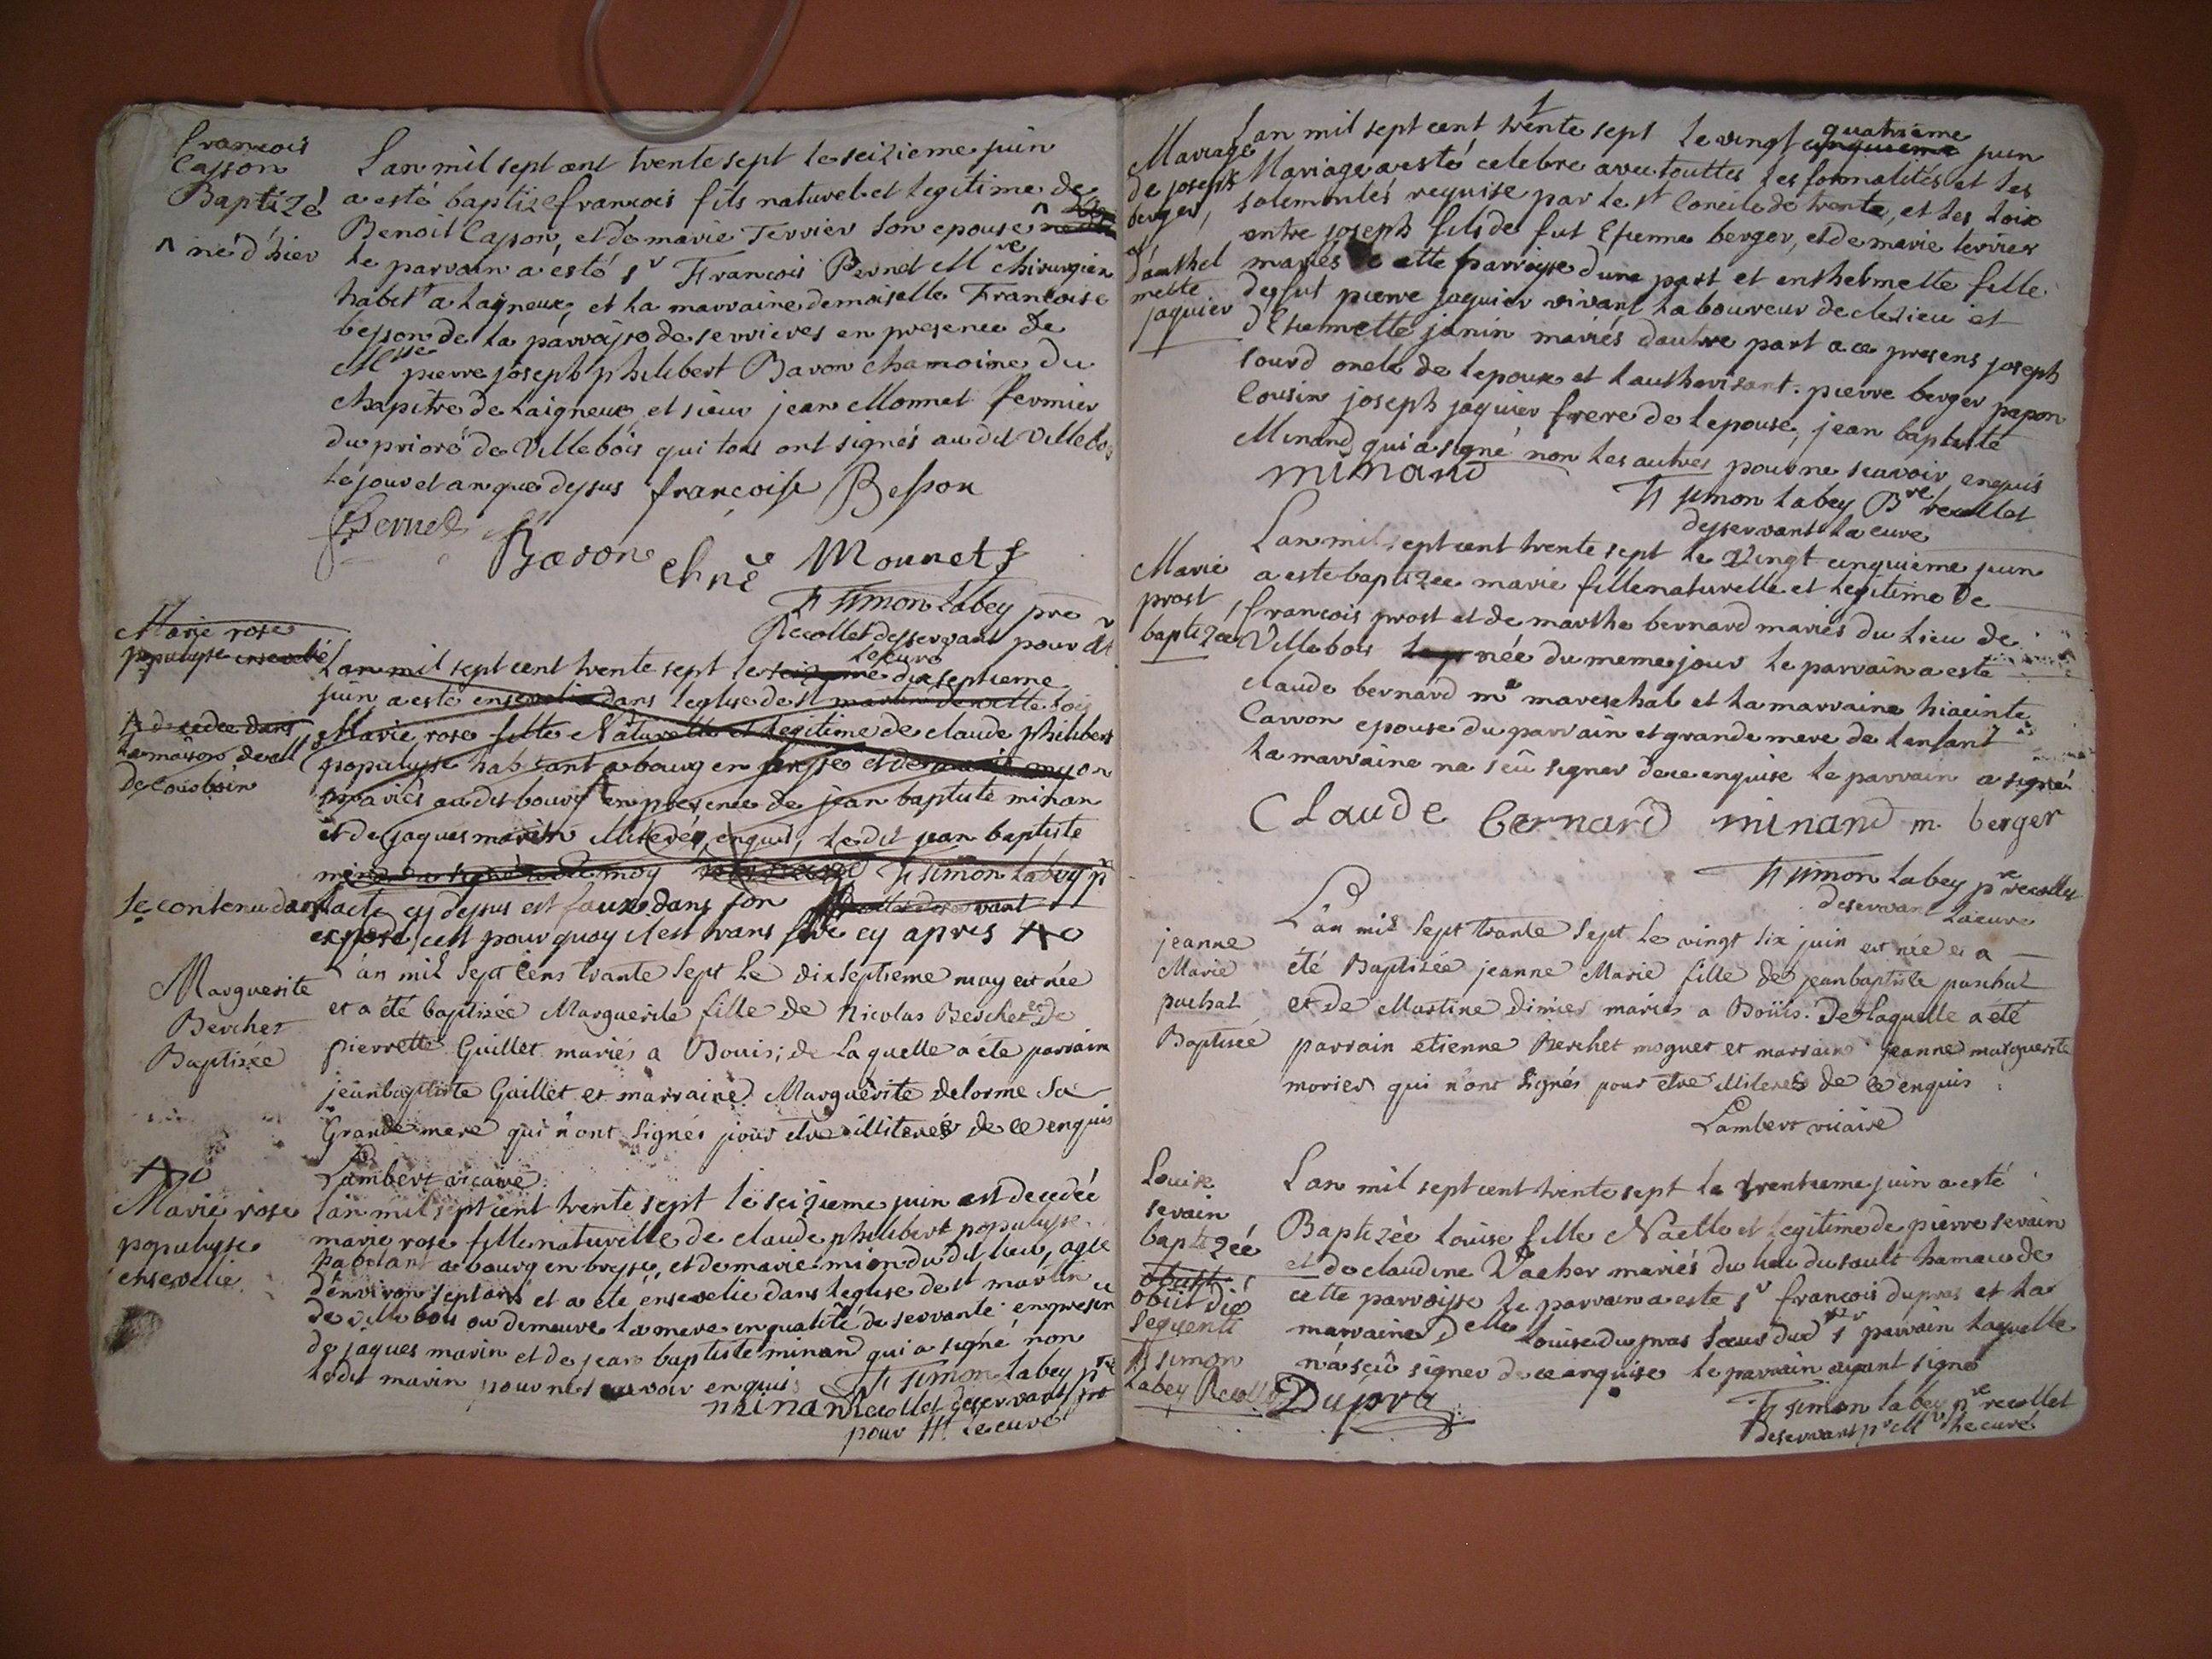 francois
Casson
Baptizé
^ né d'hier
Lan mil sept cent trente sept le seizieme juin
a esté baptizé francois fils naturel et legitime de
Benoit Casson, et de marie Terrier son epouse ^
le parrain a esté sr Francois Pernet Mre chirurgien
habitt a Lagneux, et la marraine demoiselle Francoise
besson de la parroisse de serrieres en presence de
Mre pierre joseph philibert Baron chanoine du
chapitre de Laigneux et sieur jean Monnet fermier
du prioré de Villebois qui tous ont signés au dit Villebois
le jour et an que dessus françoise Besson
Pernet Baron chne Mounet
fr simon Labey pre
Recollet desservant pour Mr
Le curé
Marie rose
populysse ensevelie
decedée dans
la maison de
Lan mil sept cent trente sept le seizieme dix septieme
juin a esté ensevelie dans leglise de st martin de villebois
Marie rose fille Naturelle et legitime de claude philibert
populysse habitant a bourg en bresse et de marie myon
mariés au dit bourg en presence de jean baptiste minan
et de jaques marin illiterés, enquis, ledit jean baptiste
minand a signé avec moy fr simon Labey pr
Recollet desservant
Le contenu dans lacte cy dessus est faux dans son
exposé, cest pourquoy il est transferé cy apres
Marguerite
Berchet
Baptisée
L'an mil Sept Cens trante Sept Le dixseptieme may est née
et a été baptisée Marguerite fille de Nicolas Berchet et de
pierrette Guillet mariés a Bouis; de Laquelle a été parrain
jeanbaptiste Guillet et marraine Marguerite delorme Sa
Grande mere qui n'ont Signés pour etre illiterés de ce enquis
Lambert vicaire
Marie rose
populysse
ensevelie
Lan mil sept cent trente sept le seizieme juin est decedée
marie rose fille naturelle de claude philibert populysse
habitant a bourg en bresse, et de marie mion du dit lieu, agée
d'environ sept ans et a eté ensevelie dans leglise de st martin
de villebois ou demeure la mere en qualité de servante en presence
de jaques marin et de jean baptiste minand qui a signé non
ledit marin pour ne scavoir enquis fr simon labey pre
minand Recollet deservant
pour Mr le curé
Mariage
de joseph
berger,
et
d'anthel
mette
jaquier
Lan mil sept cent trente sept le vingt cinquieme quatrieme juin
Mariage a esté celebre avec touttes les formalités et les
solemnités requise par le st Concile de trente, et les loix
entre joseph fils de fut Etienne berger, et de marie terrier
mariés de cette parroisse d'une part et enthelmette fille
de fut pierre jaquier vivant laboureur de clezieu et
d'Etiennette janin mariés dautre part a ce presens joseph
sourd oncle de lepoux et lauthorisant. pierre berger pepon
Cousin joseph jaquier frere de lepouse, jean baptiste
Minand qui a signé non les autres pour ne scavoir enquis
minand
fr simon labey Pre recollet
desservant la cure
Marie
prost
baptizée
Lan mil sept cent trente sept le Vingt cinquieme juin
a este baptizée marie fille naturelle et legitime de
françois prost et de marthe bernard mariés du lieu de
Villebois née du meme jour le parrain a esté
claude bernard me mareschal et la marraine hiacinte
Carron epouse du parrain et grande mere de lenfant
la marraine na sçû signer de ce enquise le parrain a signé
Claude bernard minand m. berger
fr simon labey pre recollet
deservant la cure
jeanne
Marie
puchat
Baptisée
L'an mil Sept trante Sept Le vingt Six juin est née et a
été Baptisée jeanne Marie fille de jeanbaptiste puschat
et de Martine dimier mariés a Boüis. De Laquelle a été
parrain etienne Berchet moguet et marraine jeanne marguerite
morier qui n'ont Signés pour etre illiterés de ce enquis
Lambert vicaire
Louise
servain
baptizée
obiit die
sequenti
fr simon
labey Recollet
Lan mil sept cent trente sept le trentieme juin a esté
Baptizée Louise fille Naelle et legitime de pierre servain
et de claudine Vacher mariés du lieu du sault hameau de
cette parroisse le parrain a esté sr francois dupras et la
marraine Delle Louise dupras sœur dud sr parrain laquelle
n'a sçû signer de ce enquise le parrain ayant signé
Dupra
fr simon labey pre recollet
deservant pr Mr le curé